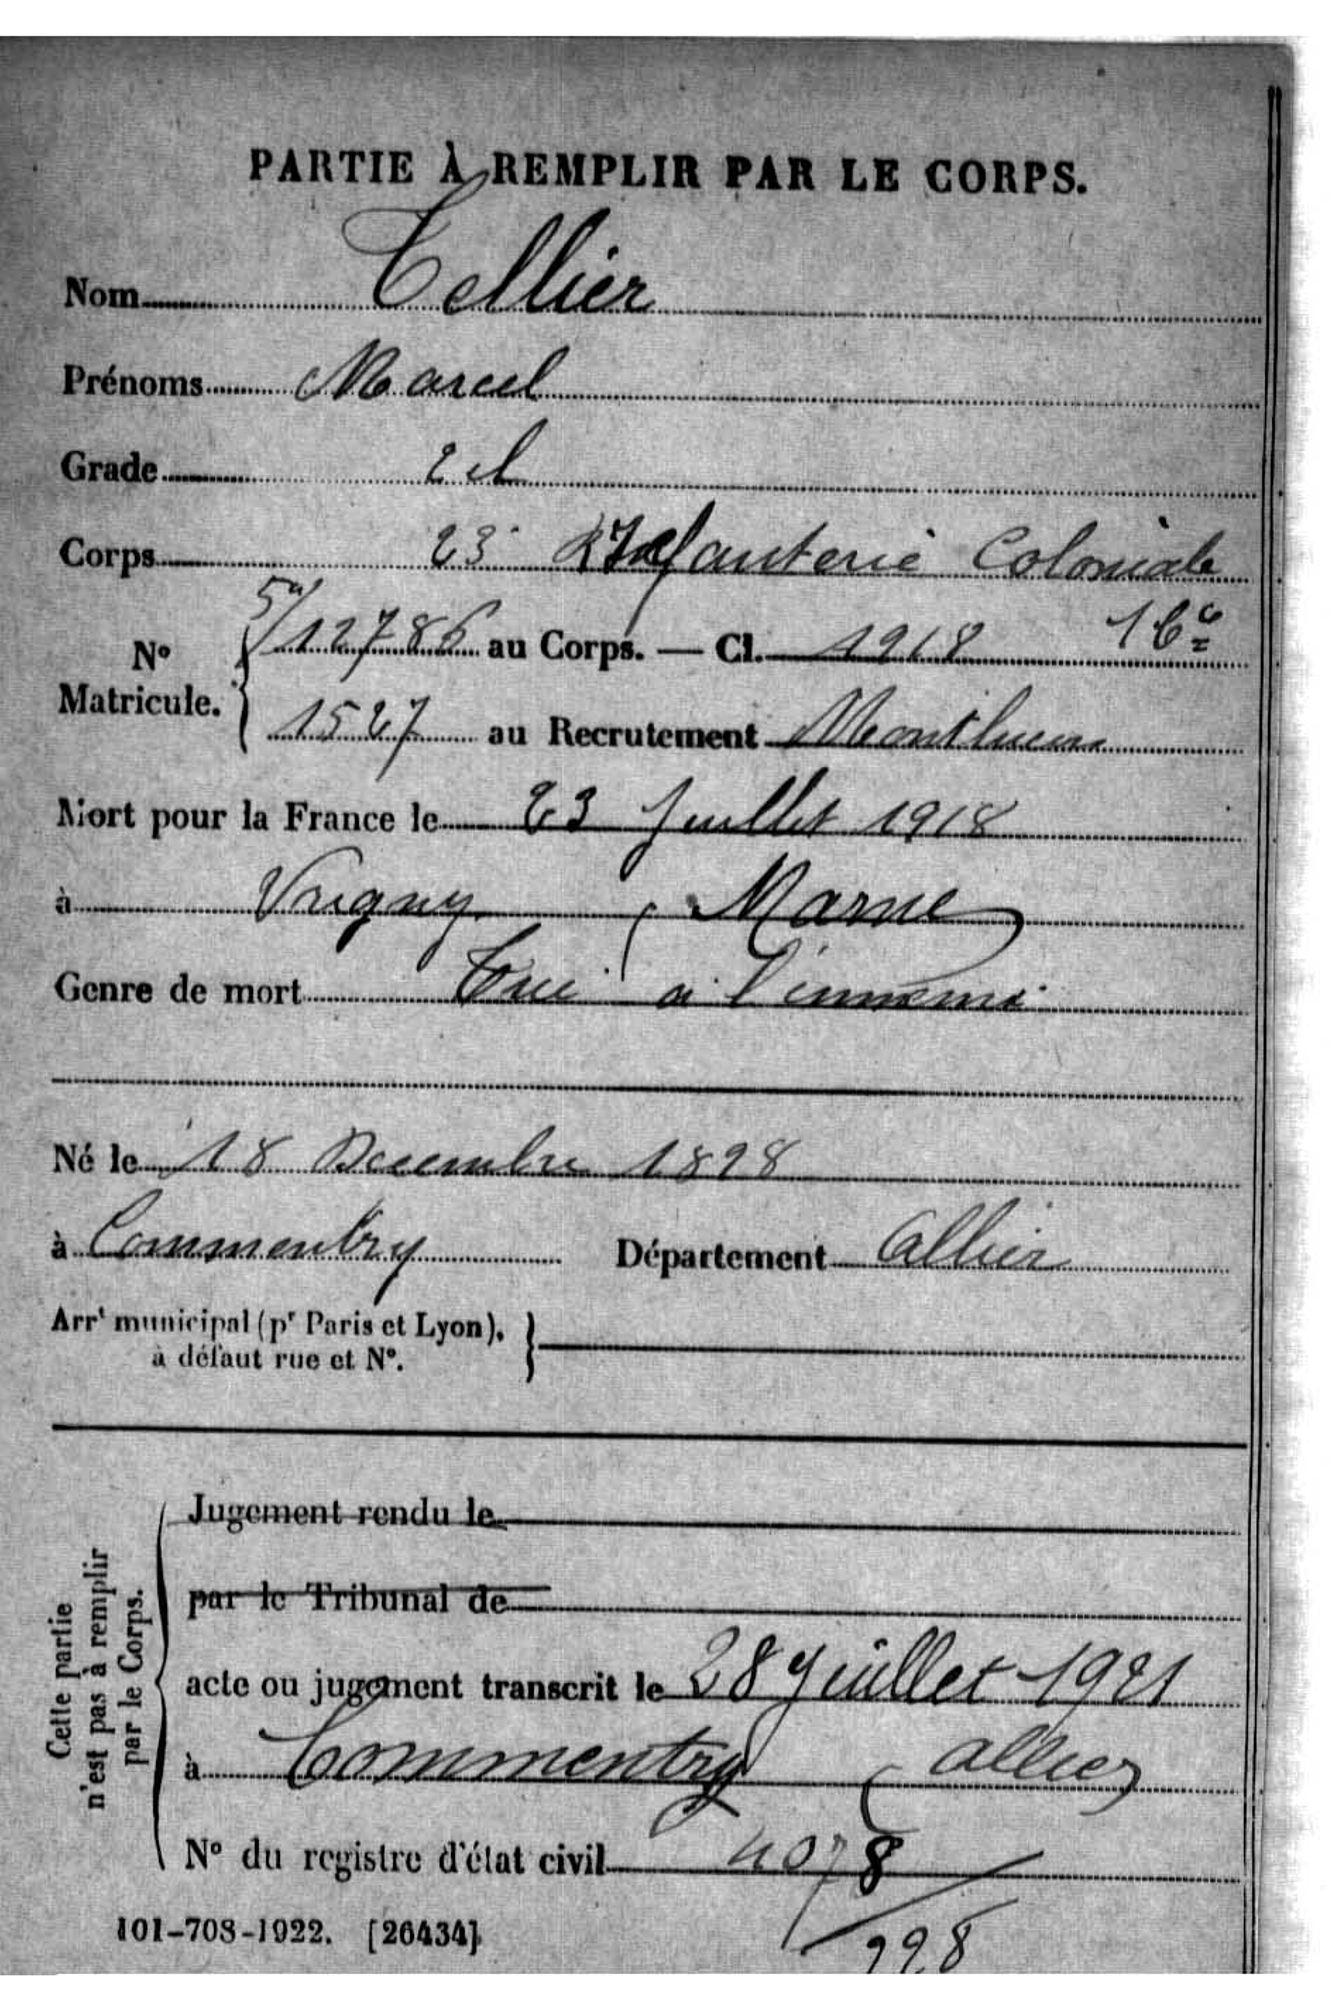 PARTIE À REMPLIR PAR LE CORPS.
Nom Tellier
Prénoms Marcel
Grade 2 cl
Corps 23e Infanterie Coloniale
N° Matricule. 5/12786 au Corps. — Cl. 1918
1527 au Recrutement Montluçon
Mort pour la France le 23 Juillet 1918
à Vrigny ( Marne )
Genre de mort Tué à l'ennemi
Né le 18 Decembre 1898
à Commentry Département Allier
Arrt municipal (pr Paris et Lyon),
à défaut rue et N°.
Cette partie
n'est pas à remplir
par le Corps.
Jugement rendu le
par le Tribunal de
acte ou jugement transcrit le 28 Juillet 1921
à Commentry ( Allier )
N° du registre d'état civil 4078/
228
101-708-1922. [26434]